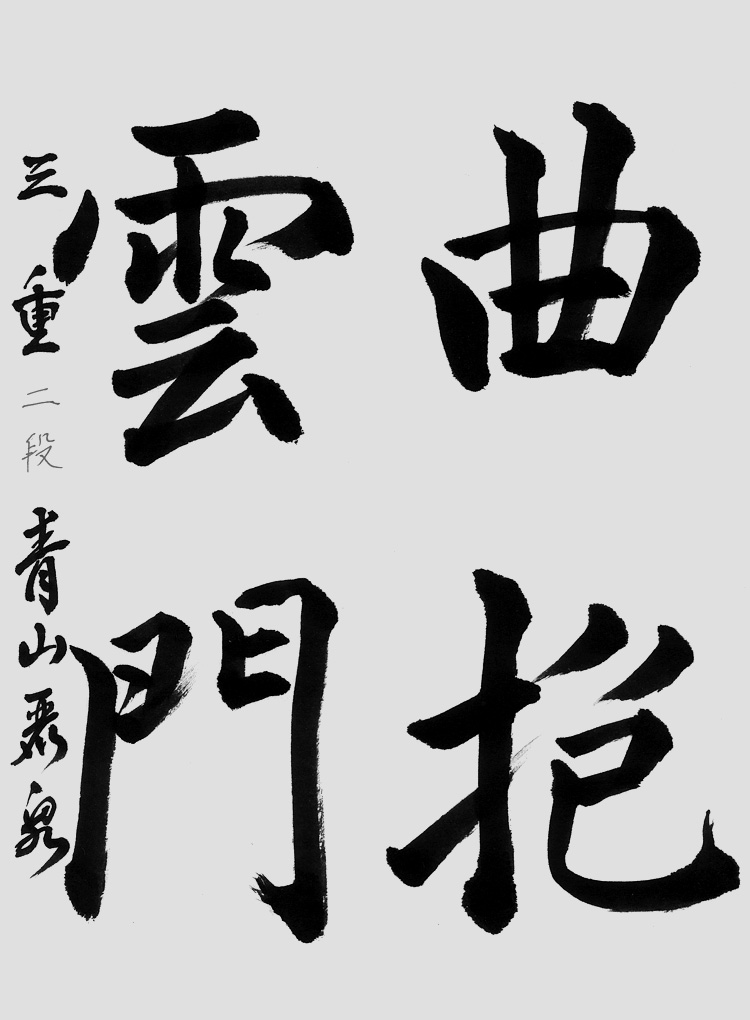 曲挹
雲門
三重 二段 青山麗泉